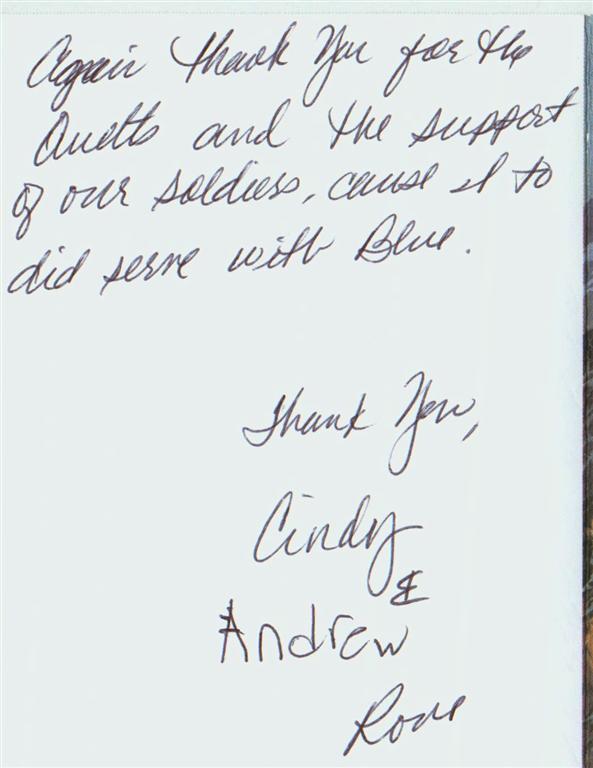 Again Thank You for the
Quilts and the support
of our soldiers, cause I to
did serve with Blue.
Thank You,
Cindy
&
Andrew